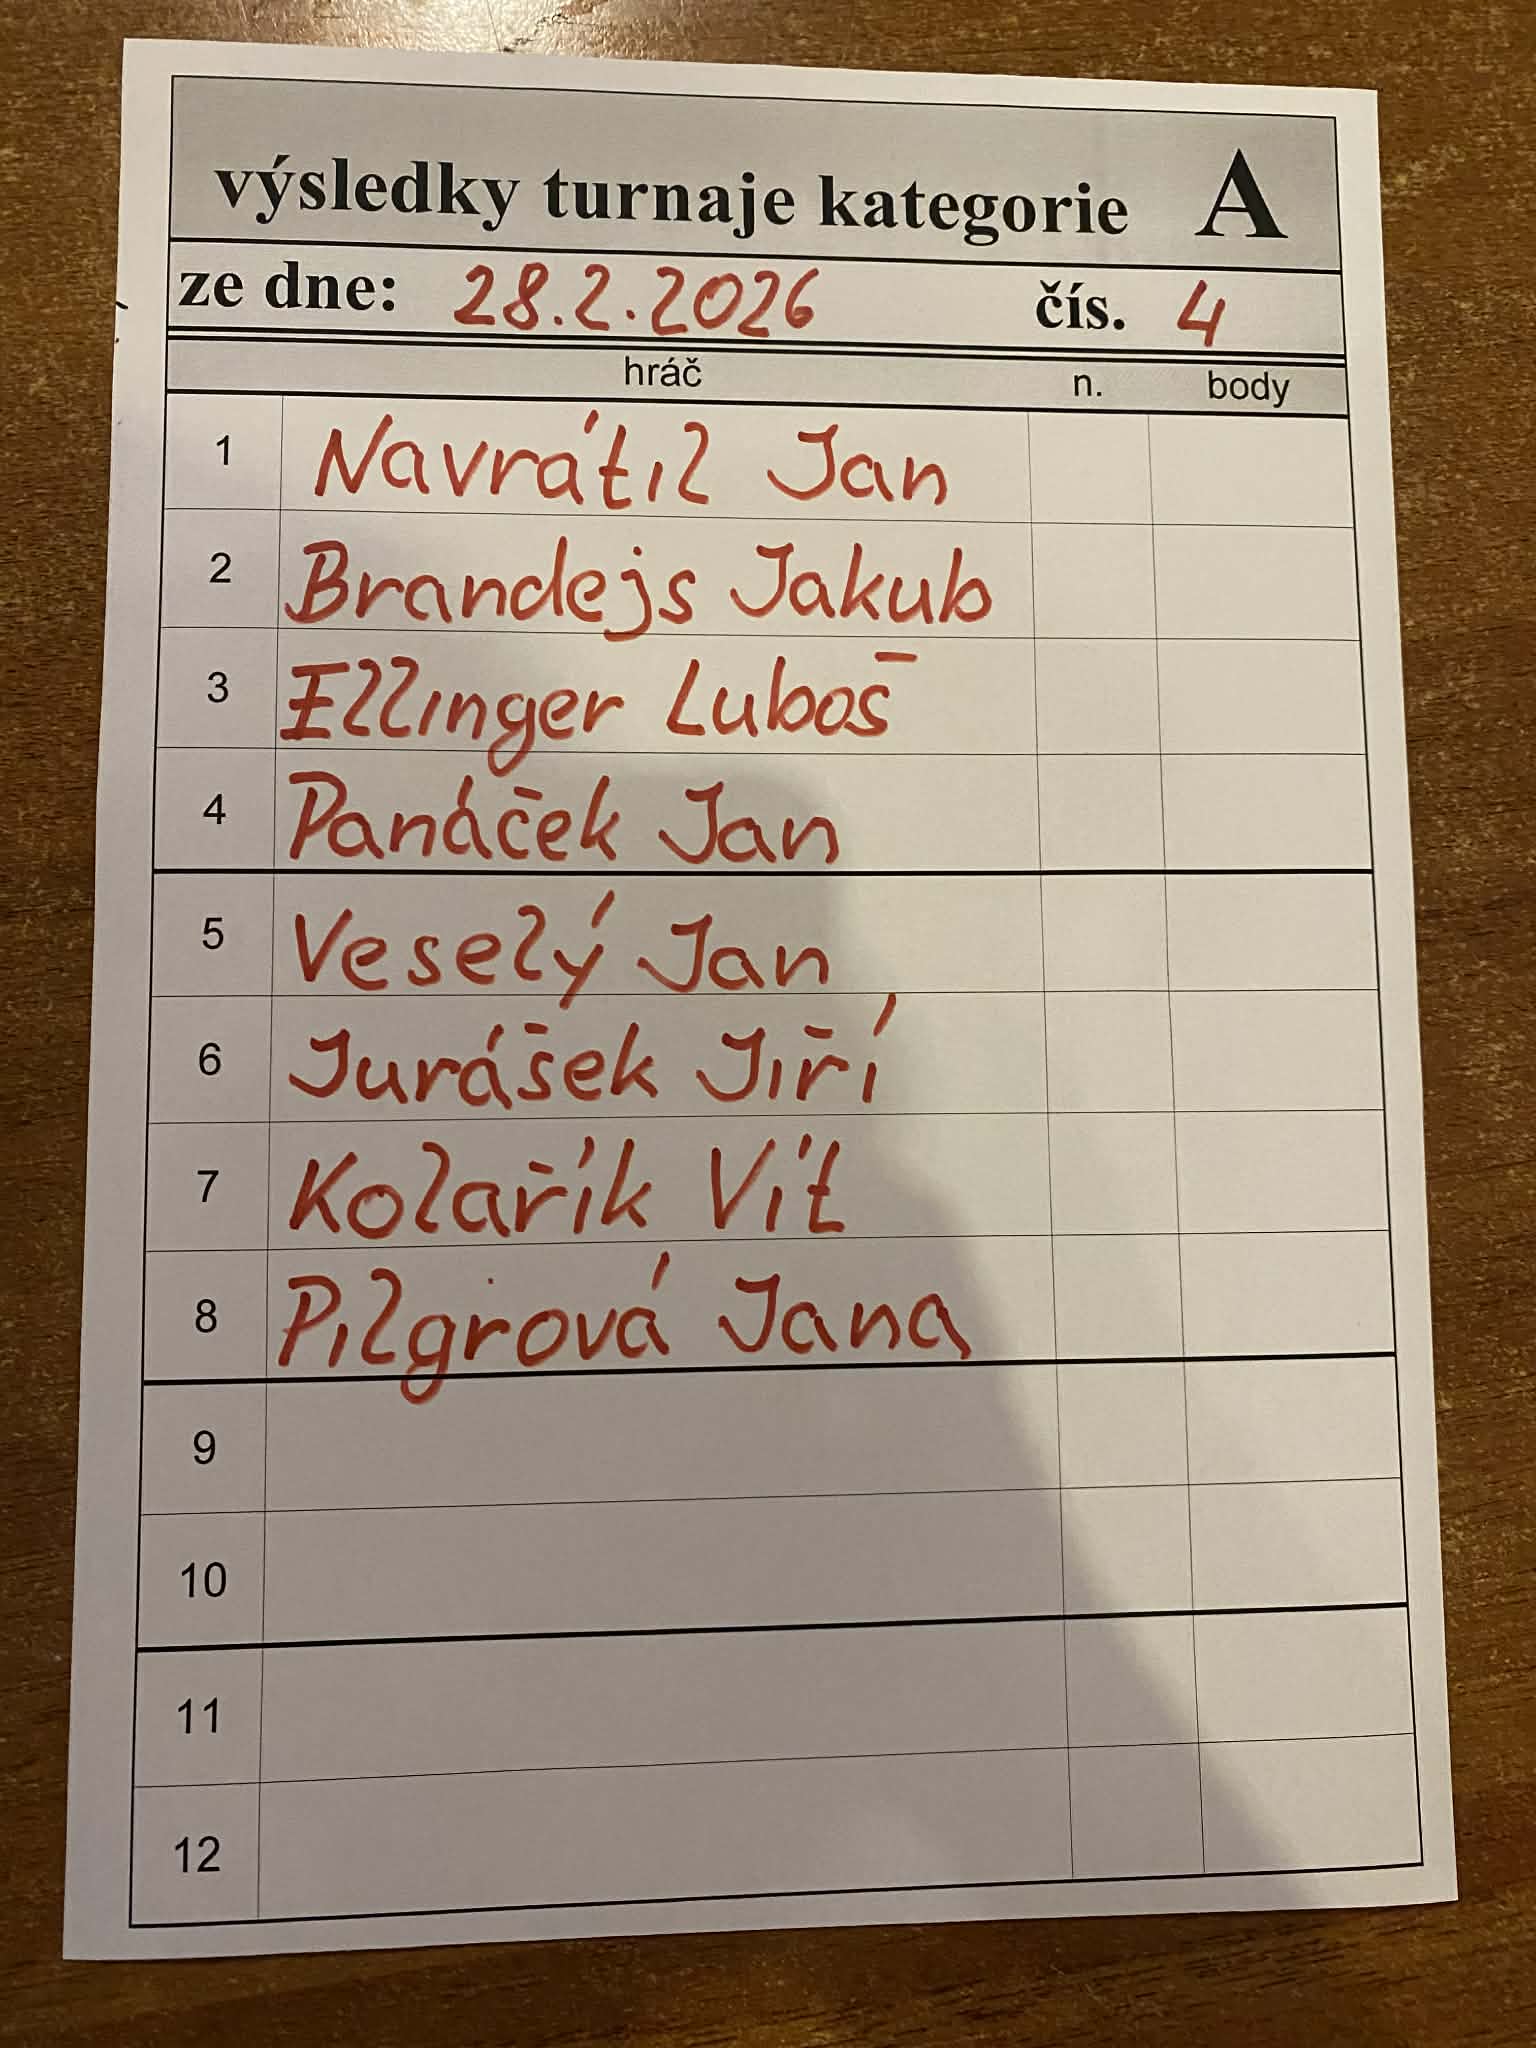 výsledky turnaje kategorie A
ze dne: 28.2.2026 čís. 4
hráč n. body
1 Navrátil Jan
2 Brandejs Jakub
3 Ellinger Luboš
4 Panáček Jan
5 Veselý Jan
6 Jurášek Jiří
7 Kolařík Vít
8 Pilgrová Jana
9
10
11
12